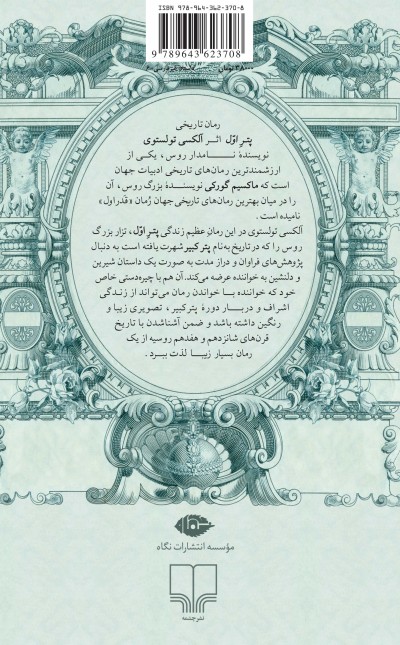 ISBN 978-964-362-370-8
9 789643 623708
رمان تاریخی
پتر اوّل اثر آلکسی تولستوی
نویسندهٔ نامدار روس، یکی از
ارزشمندترین رمان‌های تاریخی ادبیات جهان
است که ماکسیم گورکی نویسندهٔ بزرگ روس، آن
را در میان بهترین رمان‌های تاریخی جهان رُمان «قدراول»
نامیده است.
آلکسی تولستوی در این رمان عظیم زندگی پتر اوّل، تزار بزرگ
روس را که در تاریخ به‌نام پتر کبیر شهرت یافته است به دنبال
پژوهش‌های فراوان و دراز مدت به صورت یک داستان شیرین
و دلنشین به خواننده عرضه می‌کند. آن هم با چیره‌دستی خاص
خود که خواننده با خواندن رمان می‌تواند از زندگی
اشراف و دربار دورهٔ پترکبیر، تصویری زیبا و
رنگین داشته باشد و ضمن آشناشدن با تاریخ
قرن‌های شانزدهم و هفدهم روسیه از یک
رمان بسیار زیبا لذت ببرد.
نگاه
مؤسسه انتشارات نگاه
نشرچشمه